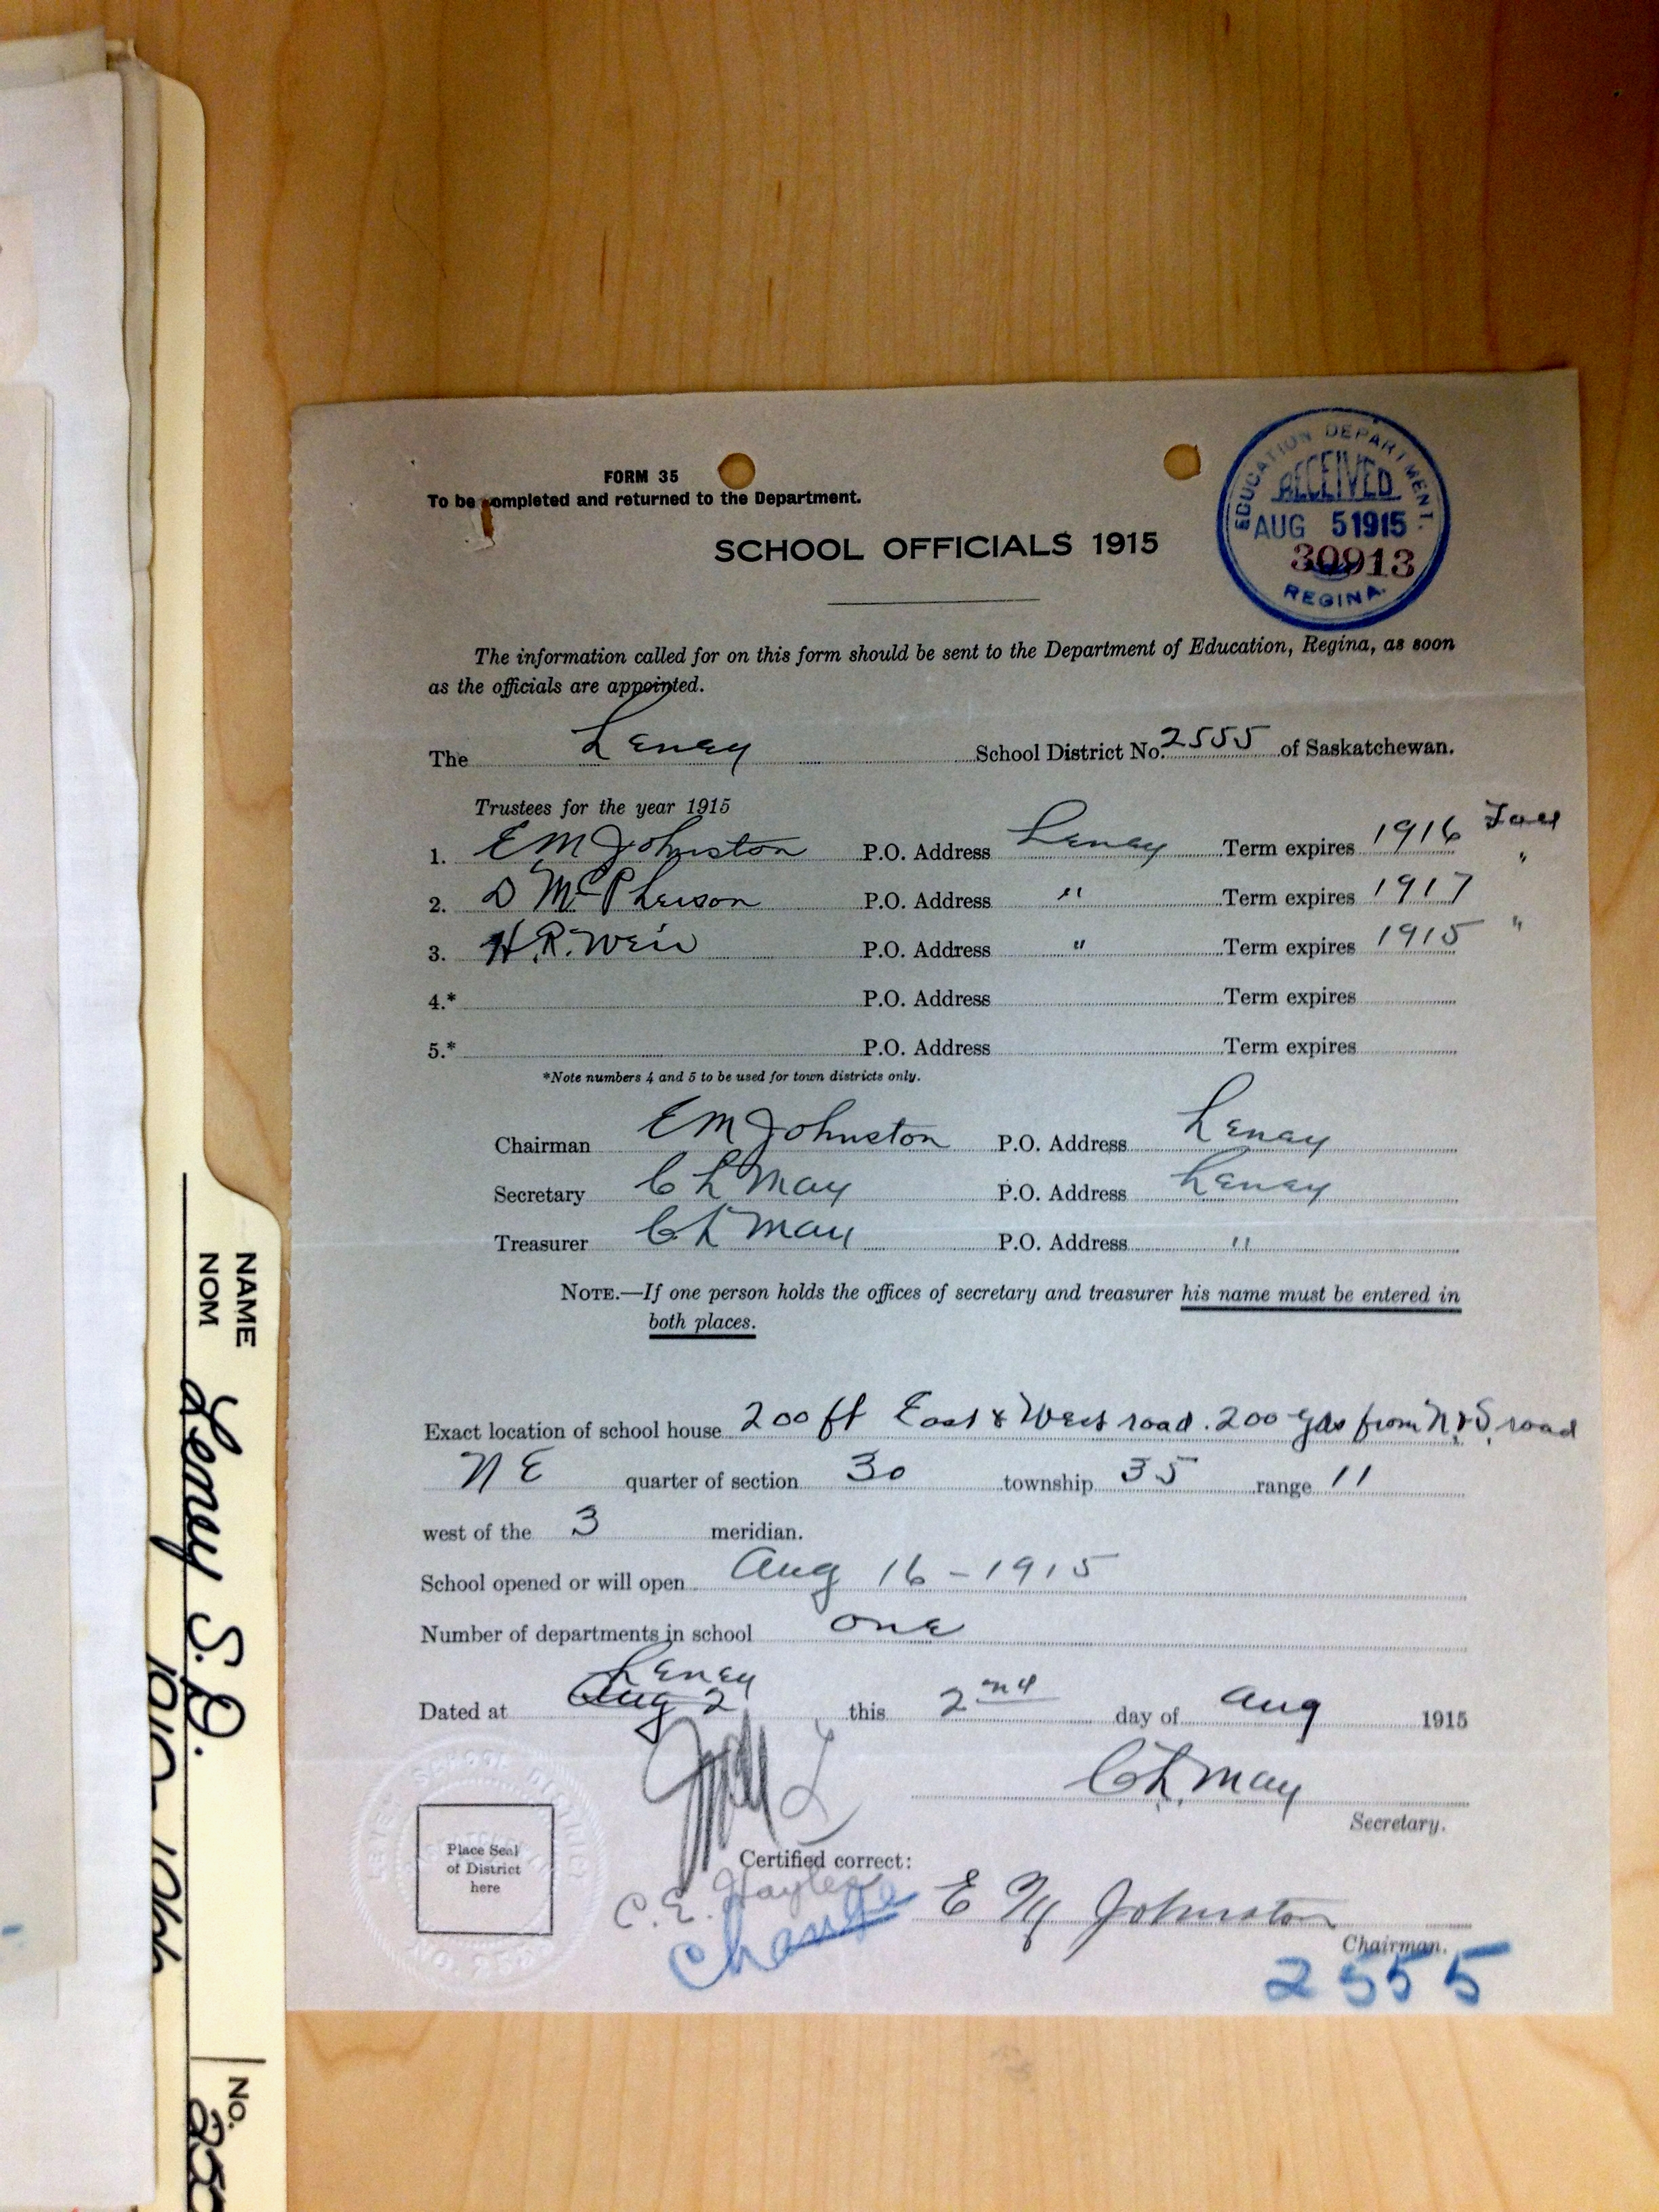 FORM 35
To be completed and returned to the Department.
SCHOOL OFFICIALS 1915
EDUCATION DEPARTMENT.
RECEIVED
AUG 5 1915
30913
REGINA.
The information called for on this form should be sent to the Department of Education, Regina, as soon
as the officials are appointed.
The Leney School District No. 2555 of Saskatchewan.
Trustees for the year 1915
1. E M Johnston P.O. Address Leney Term expires 1916
2. D McPherson P.O. Address " Term expires 1917 "
3. H.R. Weir P.O. Address " Term expires 1915 "
4.* P.O. Address Term expires
5.* P.O. Address Term expires
*Note numbers 4 and 5 to be used for town districts only.
Chairman E M Johnston P.O. Address Leney
Secretary C L May P.O. Address Leney
Treasurer C L May P.O. Address "
NOTE.—If one person holds the offices of secretary and treasurer his name must be entered in
both places.
Exact location of school house 200 ft East & West road. 200 yds from N & S. road
N E quarter of section 30 township 35 range 11
west of the 3 meridian.
School opened or will open Aug 16 - 1915
Number of departments in school one
Leney
Dated at Aug 2 this 2nd day of Aug 1915
C L. May
Secretary.
Place Seal
of District
here
Certified correct:
C. E. Hayles
Change
E M Johnston
Chairman.
2555
NAME
NOM
Leney S.D.
NO.